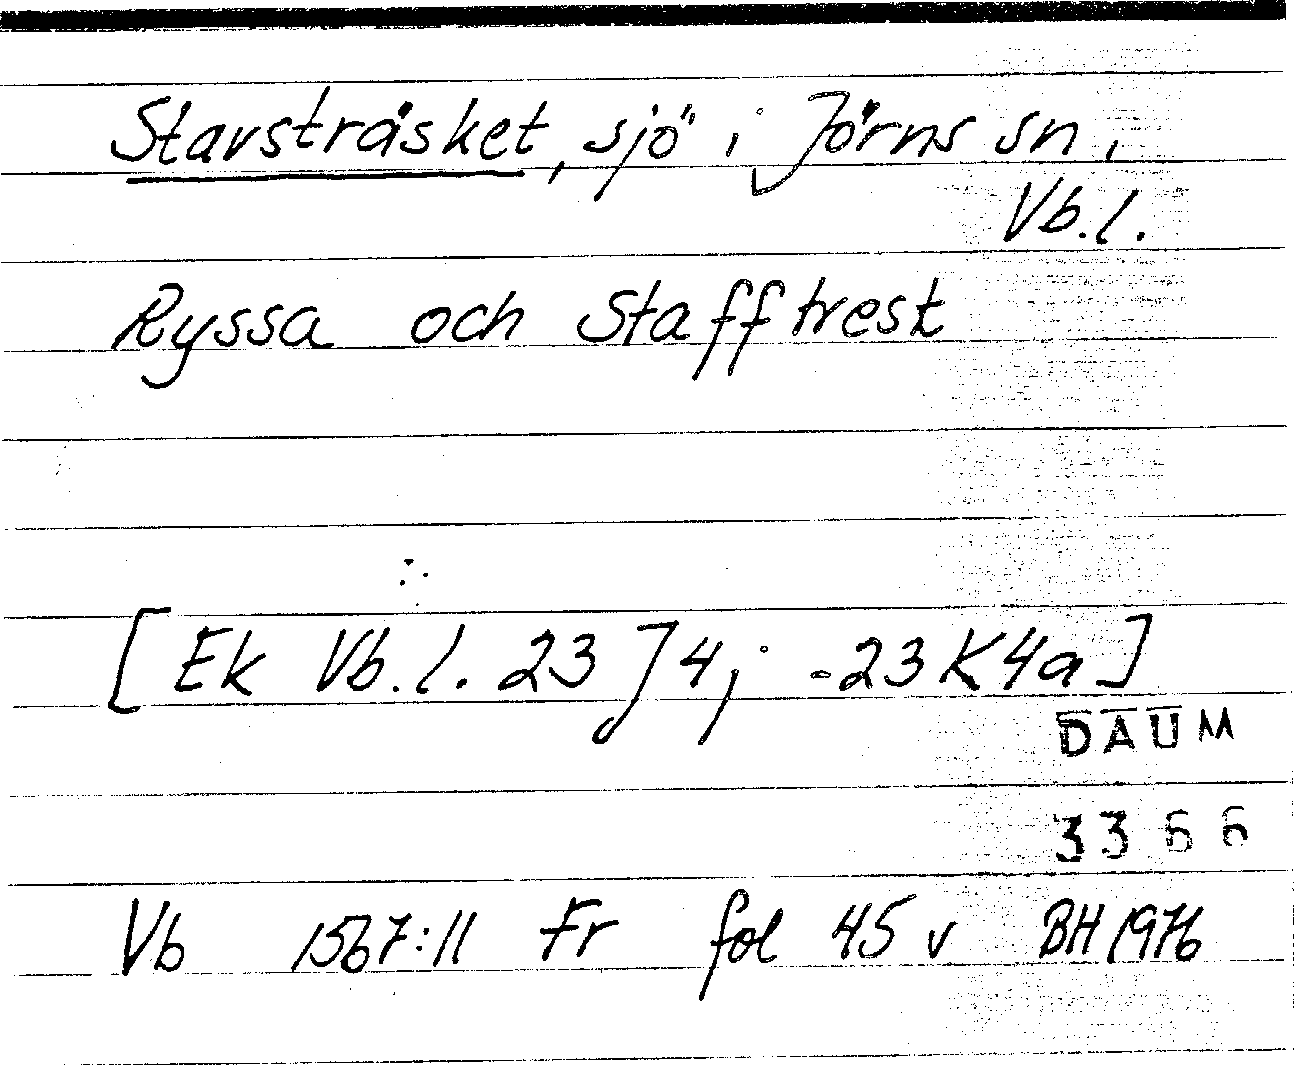 Stavsträsket, sjö i Jörns sn,
Vb.l.
Ryssa och Stafftrest
[Ek Vb.l. 23 J4; -23K4a]
DAUM
3366
Vb 1567:11 Fr fol 45 v BH 1976